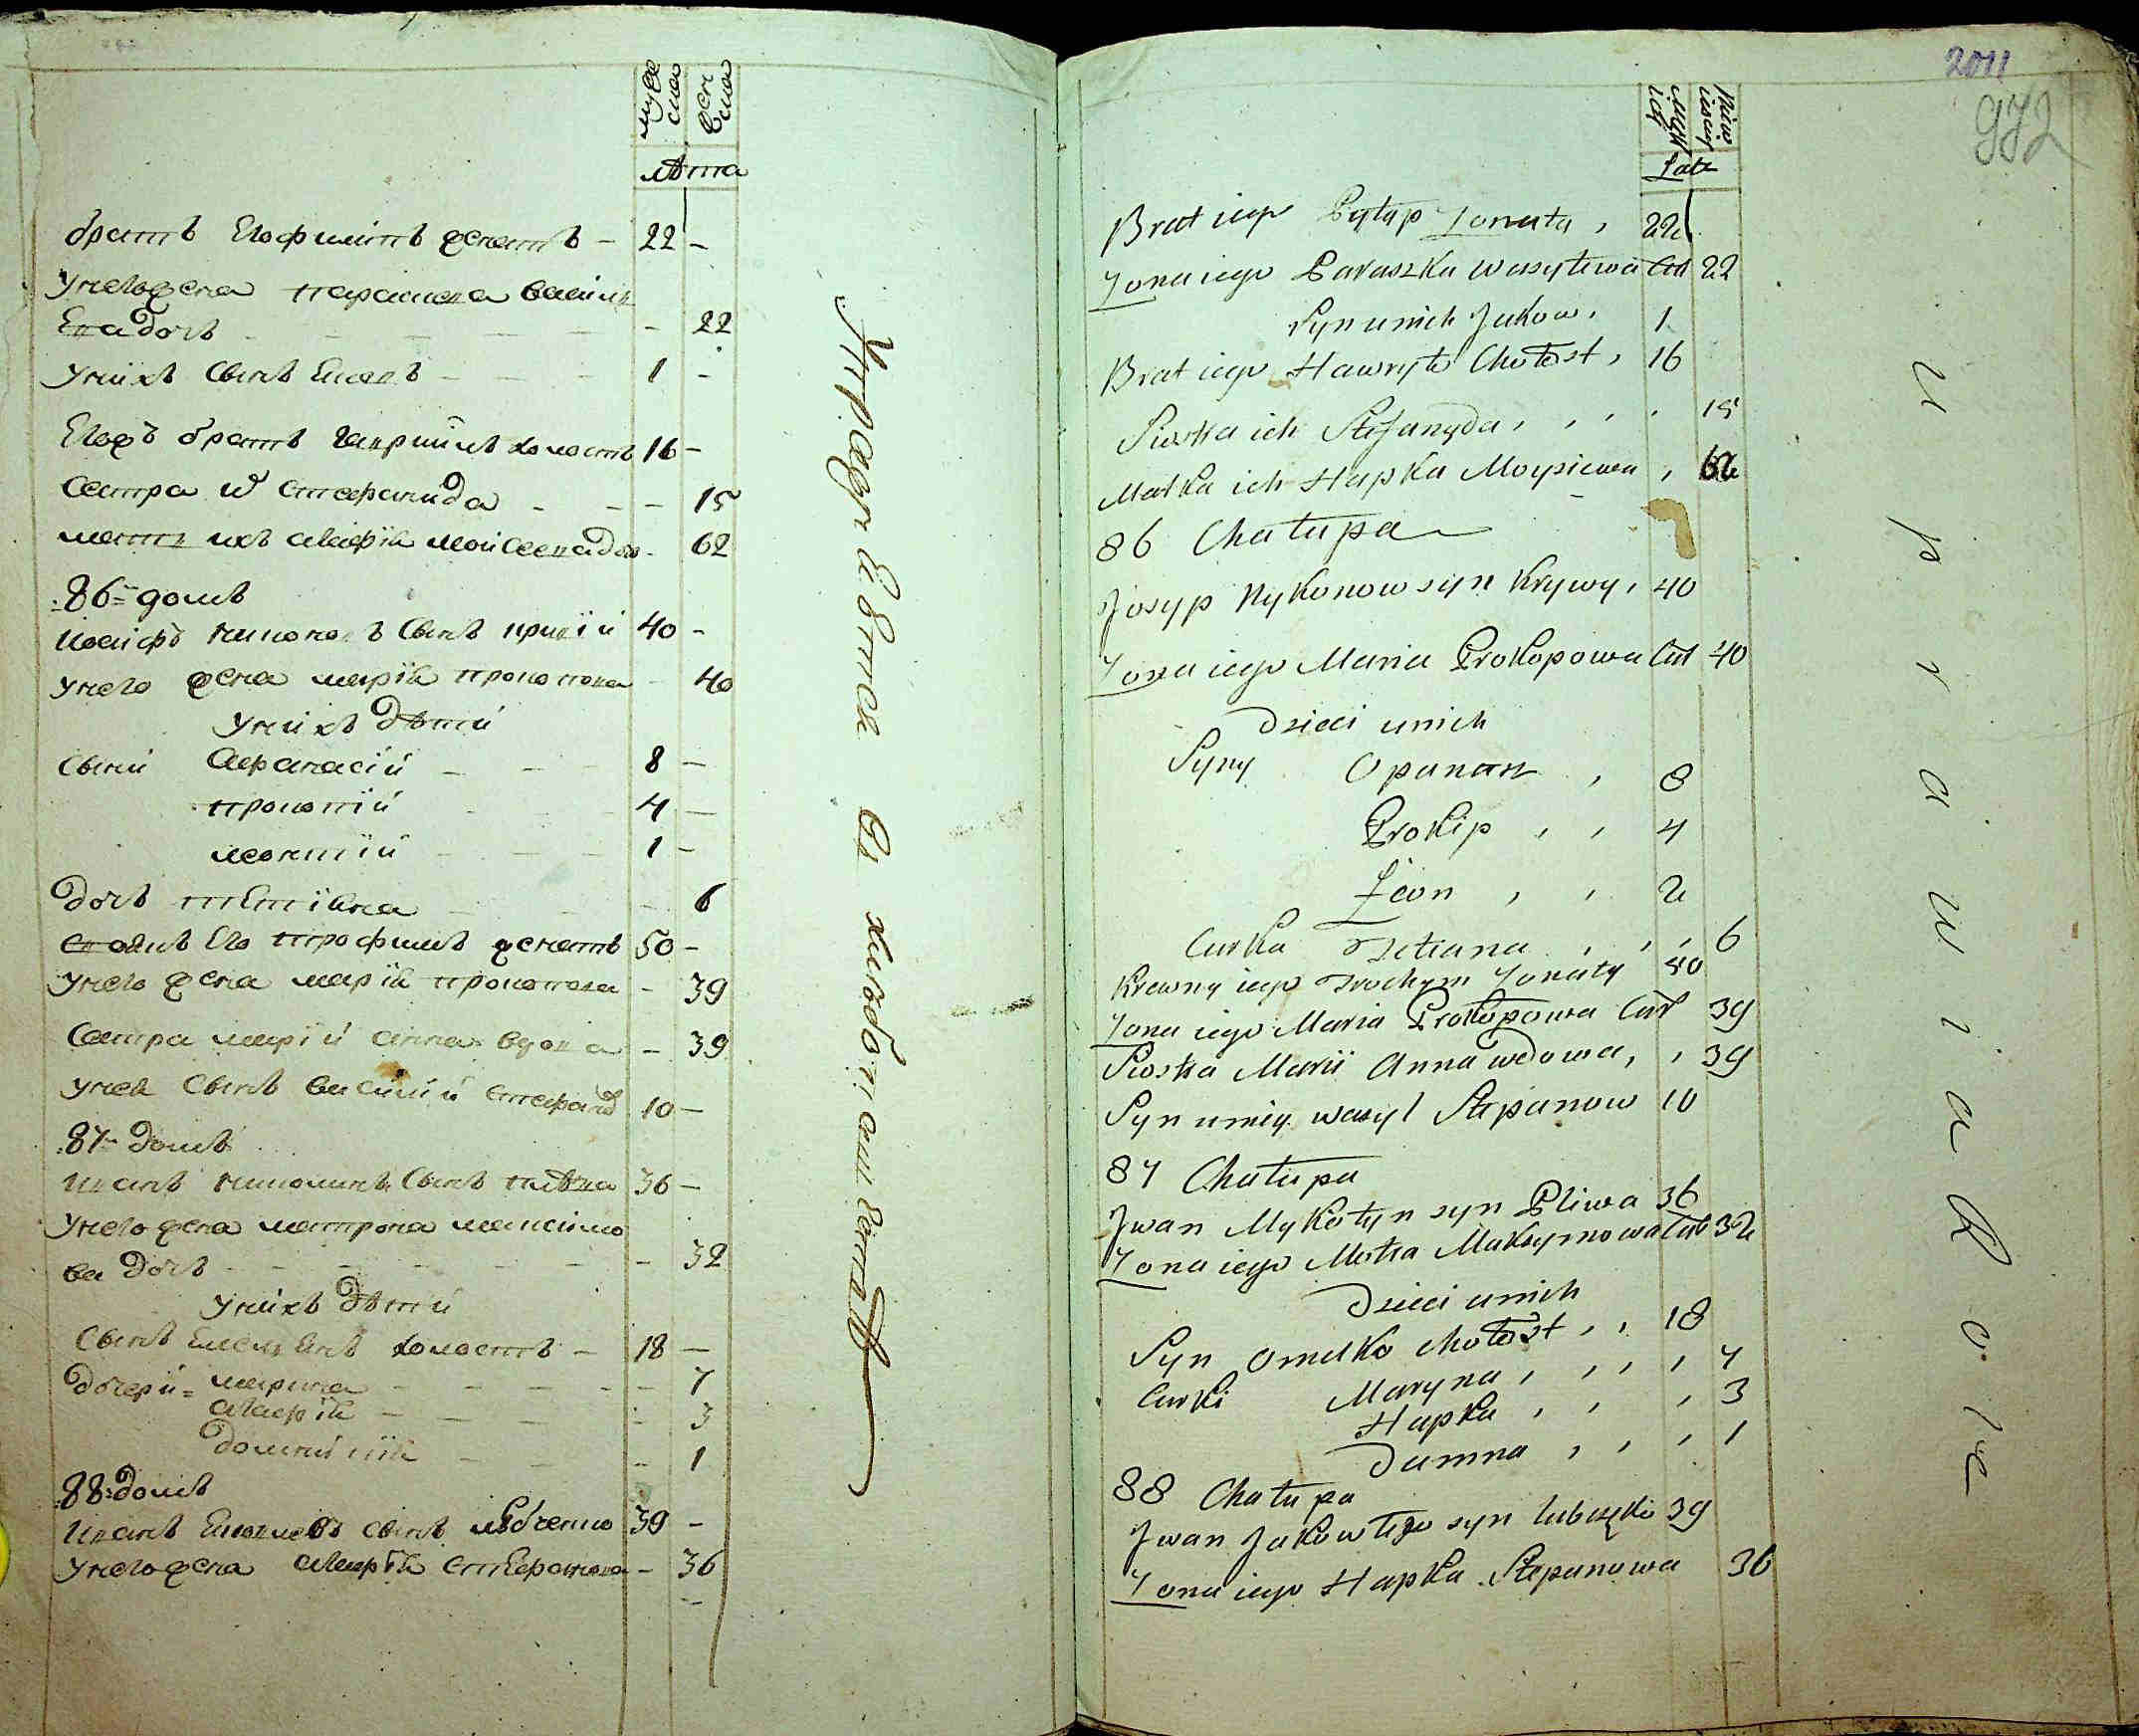 мужеска
женска
Лѣта
братъ Его Филипъ женатъ - 22 -
Унего жена параскева васил
Ева дочь - 22
Унихъ Сынъ Еяковъ - 1 -
Егожъ братъ Гавриилъ холостъ 16 -
Сестра их Стефанида - 15
мать ихъ агафия моисеева дочь - 62
86 домъ
Иосифъ никоновъ Сынъ кривій 40 -
Унего жена марія прокопова - 40
Унихъ дѣти
Сыни Афанасій - 8 -
прокопій - 4 -
леонтій - 1 -
дочь тетіяна - 6
Его трофимъ женатъ 50 -
Унего жена марія прокопова - 39
Сестра маріи анна вдова - 39
Унея Сынъ василий стефанов 10 -
87 домъ
Иванъ николинъ Сынъ плѣва 36 -
Унего жена матрона максимо
ва дочь - 32
Унихъ дѣти
Сынъ Емельянъ холостъ - 18 -
дочери = марина - 7
агафія - 3
домникія - 1
88 домъ
Иванъ Сынъ 39 -
Унего жена агафія стефанова - 36
Meżów
Męskich
Niewieścich
Lata
Brat iego Pylyp Zonaty, 22
Zona iego Paraszka Wasylowa Cur 22
Syn u nich Jakow, 1
Brat iego Hawryło Chołost, 16
Siostra ich Stefanyda, 15
Matka ich Hapka Moysiewa, 62
86 Chałupa
Josyp Nykonow syn Krywy, 40
Zona iego Maria Prokopowa Cur 40
Dzieci u nich
Syny Opanas, 8
Prokip, 4
Leon, 2
Curka Tetiana, 6
Krewny iego Trochym Zonaty 50
Zona iego Maria Prokopowa Cur 39
Siostra Marii Anna wdowa, 39
Syn u niey Wasyl Stepanow 10
87 Chałupa
Jwan Mykołyn syn Pliwa 36
Zona iego Motra Maksymowa Cur 32
Dzieci u nich
Syn Omelko Chołost, 18
Curki Maryna, 7
Hapka, 3
Dumna, 1
88 Chałupa
Jwan Jakowlew syn 39
Zona iego Hapka Stepanowa 36
2011
972